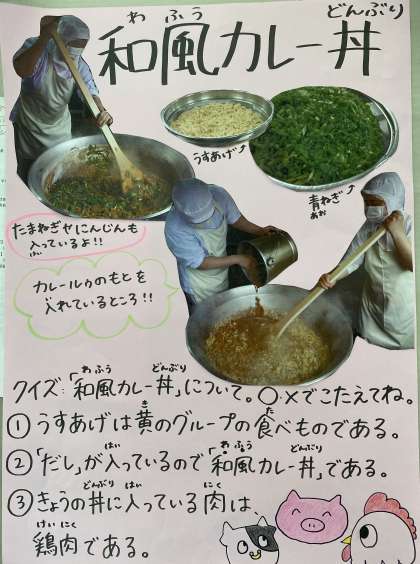 わ ふう どんぶり
和風カレー丼
うすあげ
青ねぎ
あお
たまねぎやにんじんも
入っているよ!!
はい
カレールゥのもとを
入れているところ!!
わ ふう どんぶり
クイズ:「和風カレー丼」について。○.×でこたえてね。
き た
①うすあげは黄のグループの食べものである。
はい わ ふう どんぶり
②「だし」が入っているので「和風カレー丼」である。
どんぶり はい にく
③きょうの丼に入っている肉は
けい にく
鶏肉である。